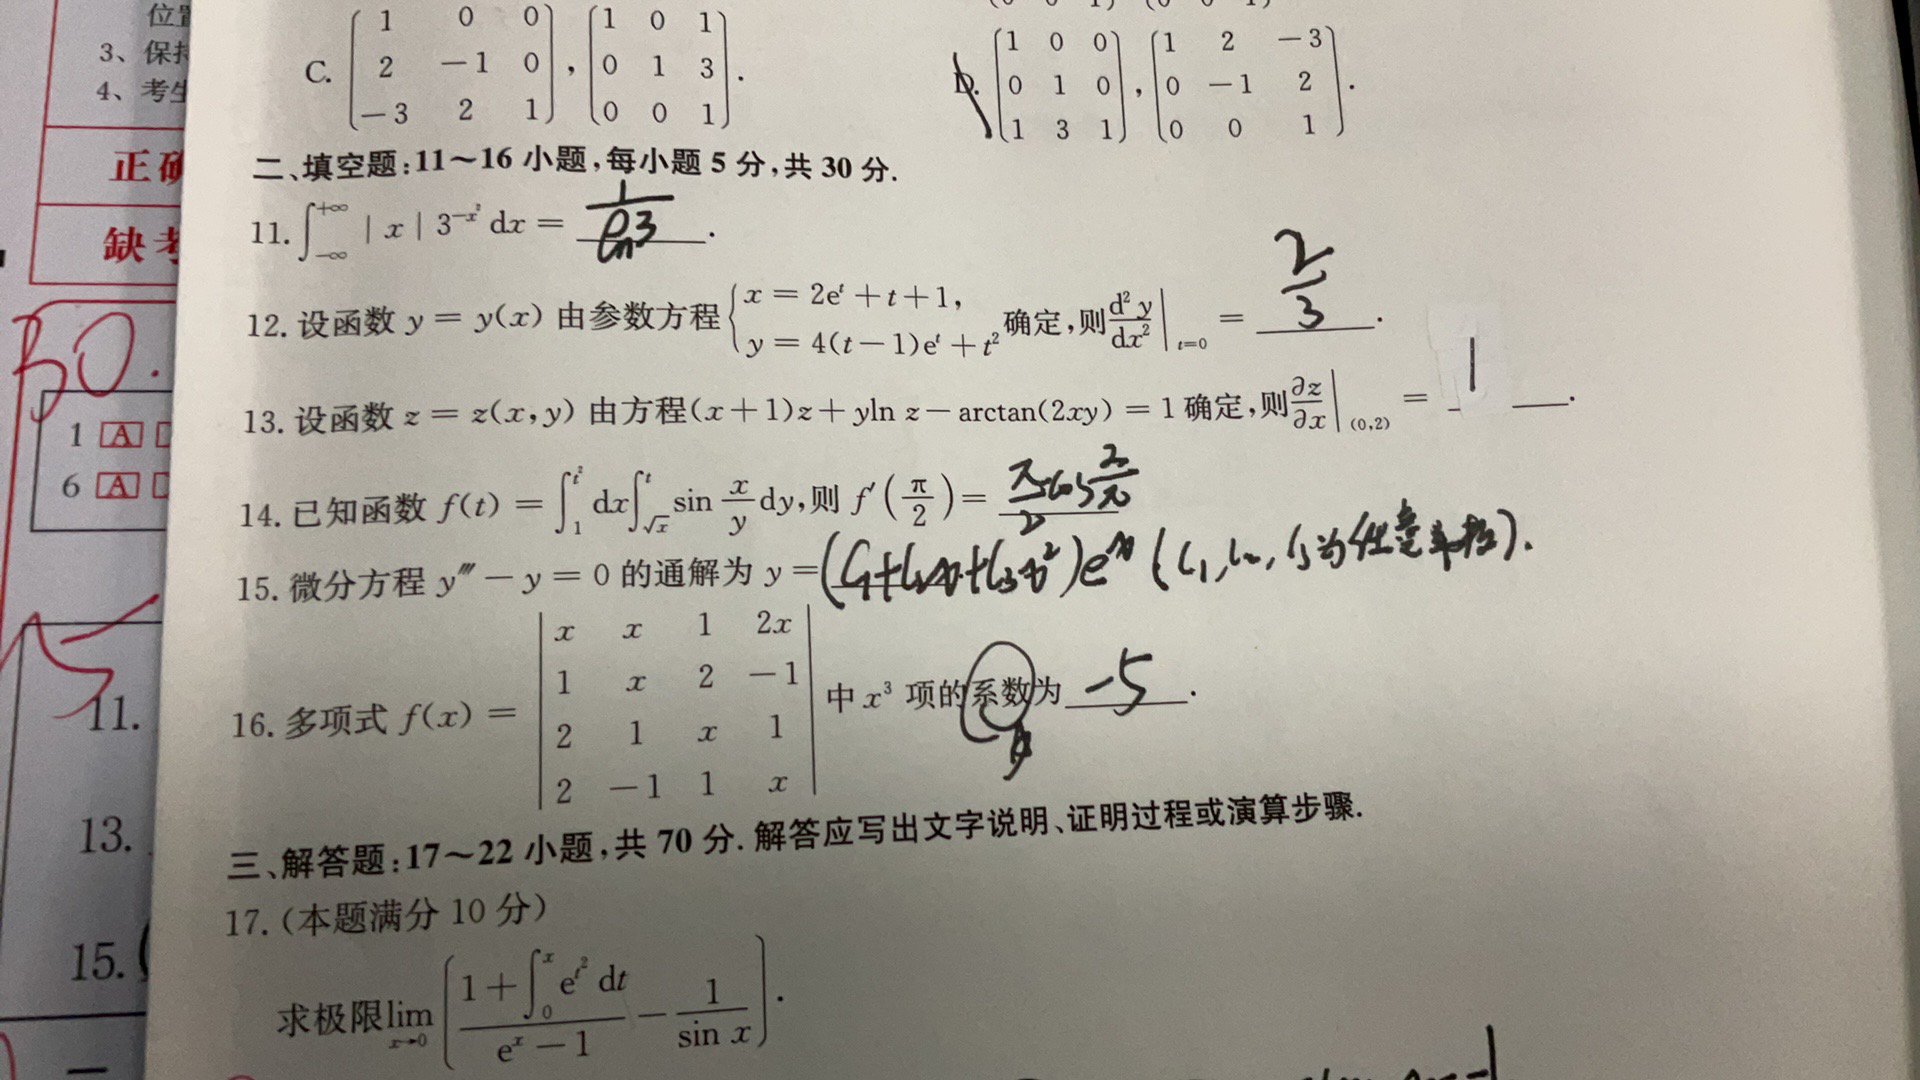 位置
3、保持
4、考生
正确
缺考
50.
1 [A]
6 [A]
11.
13.
15.(
C. (1 0 0; 2 −1 0; −3 2 1), (1 0 1; 0 1 3; 0 0 1).
D. (1 0 0; 0 1 0; 1 3 1), (1 2 −3; 0 −1 2; 0 0 1).
二、填空题:11～16 小题,每小题 5 分,共 30 分.
11. ∫_{−∞}^{+∞} |x| 3^{−x²} dx = 1/ln3 .
12. 设函数 y = y(x) 由参数方程 { x = 2e^t + t + 1, y = 4(t−1)e^t + t² 确定,则 d²y/dx² |_{t=0} = 2/3 .
13. 设函数 z = z(x,y) 由方程(x+1)z + yln z − arctan(2xy) = 1 确定,则 ∂z/∂x |_{(0,2)} = 1 .
14. 已知函数 f(t) = ∫_1^{t²} dx ∫_{√x}^t sin x/y dy,则 f′(π/2) = π/2 cos 2/π
15. 微分方程 y‴ − y = 0 的通解为 y = (C₁+C₂x+C₃x²)e^x (C₁,C₂,C₃为任意常数).
16. 多项式 f(x) = | x x 1 2x; 1 x 2 −1; 2 1 x 1; 2 −1 1 x | 中 x³ 项的系数为 -5 .
三、解答题:17～22 小题,共 70 分. 解答应写出文字说明、证明过程或演算步骤.
17. (本题满分 10 分)
求极限 lim_{x→0} [ (1+∫_0^x e^{t²} dt)/(e^x − 1) − 1/sin x ].